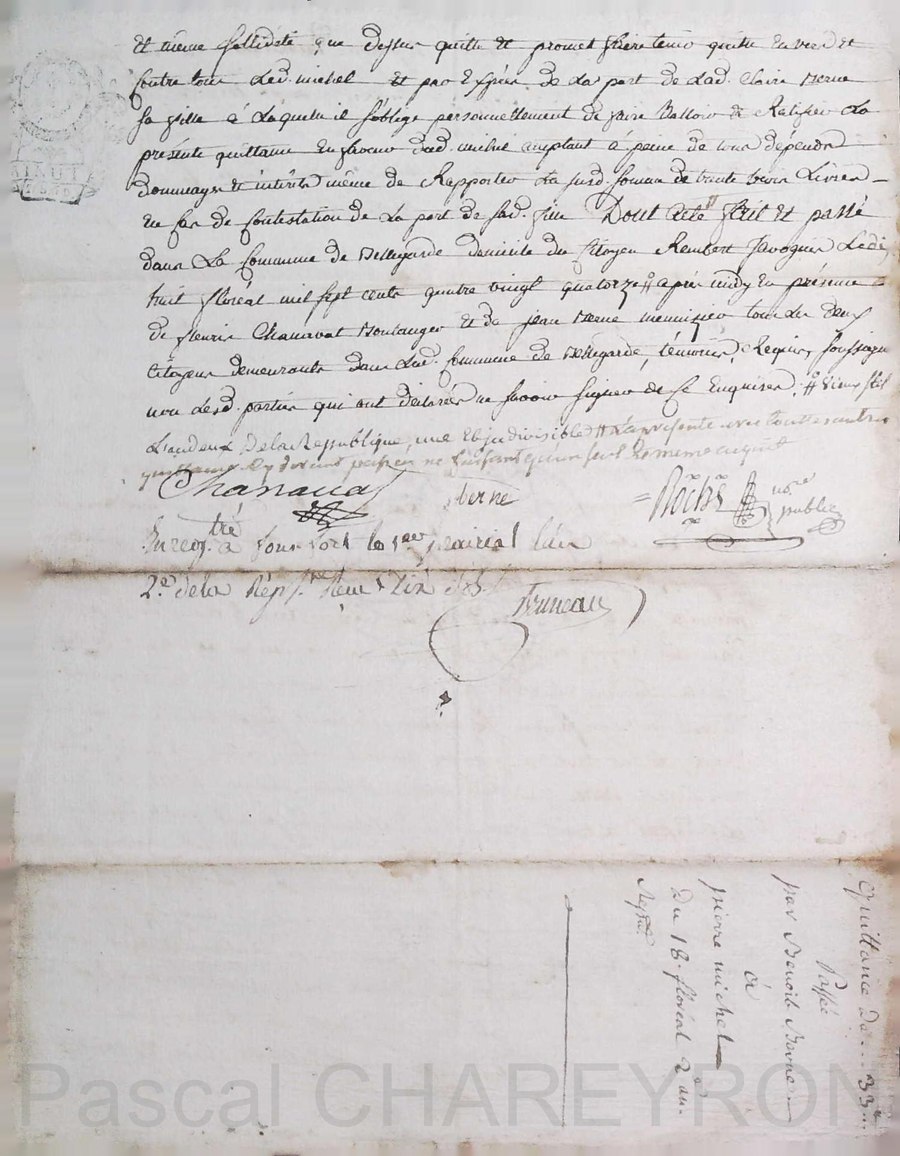 et même sollidité que dessus quitte et promet faire tenir quitte envers et
contre tous Led. michel et par Exprès de La part de Lad. Claire Berne
sa fille à Laquelle il s'oblige personnellement de faire Valloir & Ratifier La
présente quittance En faveur dud. michel acceptant à peine de tous dépends
dommages et intérêts même de Rapporter La susd. somme de trente trois Livres
en Cas de Contestation de La part de sad. fille Dont acte fait et passé
dans La Commune de Bellegarde domicile du Citoyen Rambert Javogues Le dix
huit floréal mil sept cents quatre vingt quatorze # après midy En présence
de fleuris Chanavat Boulanger et de jean Berne menuisier tous les deux
Citoyens demeurants dans Lad. Commune de Bellegarde, témoins, Requis, soussignés
non Lesd. parties qui ont déclarés ne savoir signer de Ce Enquises. # vieux stil
L'an deux De la République, une et indivisible # La présente avec toutes autres
quittances ne faisant qu'un seul & même acquit
Chanavat Berne = Roche nore
public
Enregtré à Commune le 1er prairial L'an
2e de la Rép. Reçu dix sols
Bruneau
MINUTE
Quittance de ... 33#
Passée
par Benoît Berne
à
pierre michel
Du 18. floréal 2e an.
Républ.
Pascal CHAREYRON